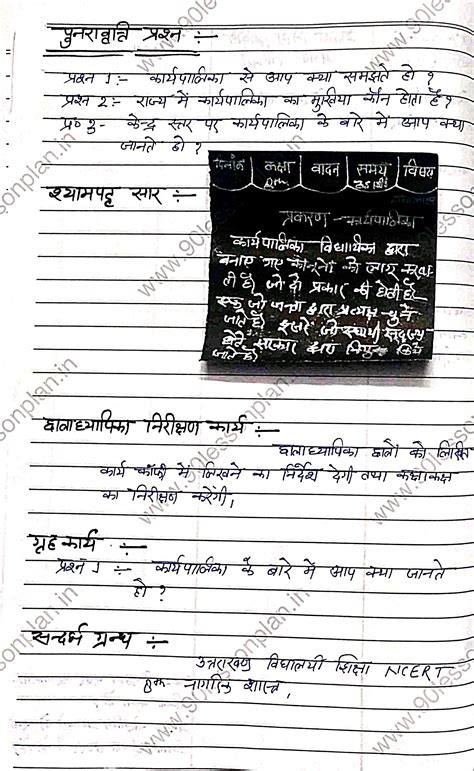 पुनरावृत्ति प्रश्न :-
प्रश्न 1:- कार्यपालिका से आप क्या समझते हो ?
प्रश्न 2:- राज्य में कार्यपालिका का मुखिया कौन होता है ?
प्र० 3- केन्द्र स्तर पर कार्यपालिका के बारे में आप क्या
जानते हो ?
श्यामपट्ट सार :-
दिनांक कक्षा वादन समय विषय
8th 35 मिनट
प्रकरण - कार्यपालिका
कार्यपालिका विधायिका द्वारा
बनाए गए कानूनों को लागू करवा
ती है। जो दो प्रकार की होती है।
एक जो जनता द्वारा प्रत्यक्ष चुने
जाते है। दूसरे जो स्थायी सदस्य
होते सरकार द्वारा नियुक्त किये
जाते है।
छात्राध्यापिका निरीक्षण कार्य :-
छात्राध्यापिका छात्रों को लिखित
कार्य कॉपी में लिखने का निर्देश देगी तथा कक्षाकक्ष
का निरीक्षण करेंगी।
गृह कार्य :-
प्रश्न 1 :- कार्यपालिका के बारे में आप क्या जानते
हो ?
सन्दर्भ ग्रन्थ :-
उत्तराखण्ड विद्यालयी शिक्षा NCERT
8th नागरिक शास्त्र,
www.90lessonplan.in